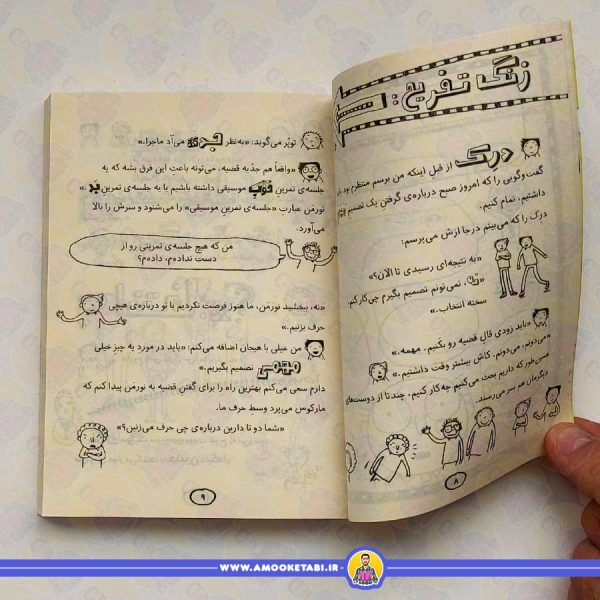 زنگ تفریح:
درک
از قبل اینکه من برسم منتظرم بود. باید
گفت‌وگویی را که امروز صبح درباره‌ی گرفتن یک تصمیم
داشتیم، تمام کنیم.
درک را که می‌بینم درجا ازش می‌پرسم:
«به نتیجه‌ای رسیدی تا الان؟»
نمی‌تونم تصمیم بگیرم چی‌کار کنم.
سخته انتخاب.»
«باید زودی قال قضیه رو بکنیم. مهمه.»
«می‌دونم، می‌دونم. کاش بیشتر وقت داشتیم.»
همین‌طور که داریم بحث می‌کنیم چه‌کار کنیم، چندتا از دوست‌های
دیگرمان هم سر می‌رسند.
۸
توپُر می‌گوید: «به‌نظر جدی می‌آد ماجرا.»
«واقعاً هم جدّیه قضیه. می‌تونه باعث این فرق بشه که یه
جلسه‌ی تمرین خوب موسیقی داشته باشیم یا یه جلسه‌ی تمرین بد.»
نورمَن عبارت «جلسه‌ی تمرین موسیقی» را می‌شنود و سرش را بالا
می‌آورد.
من که هیچ جلسه‌ی تمرینی رو از
دست نداده‌م، داده‌م؟
«نه، ببخشید نورمَن، ما هنوز فرصت نکردیم با تو درباره‌ی هیچی
حرف بزنیم.»
من خیلی با هیجان اضافه می‌کنم: «باید در مورد یه چیز خیلی
مهمی تصمیم بگیریم.»
دارم سعی می‌کنم بهترین راه را برای گفتن قضیه به نورمَن پیدا کنم که
مارکوس می‌پرد وسط حرف ما.
«شما دو تا دارین درباره‌ی چی حرف می‌زنین؟»
۹
WWW.AMOOKETABI.IR